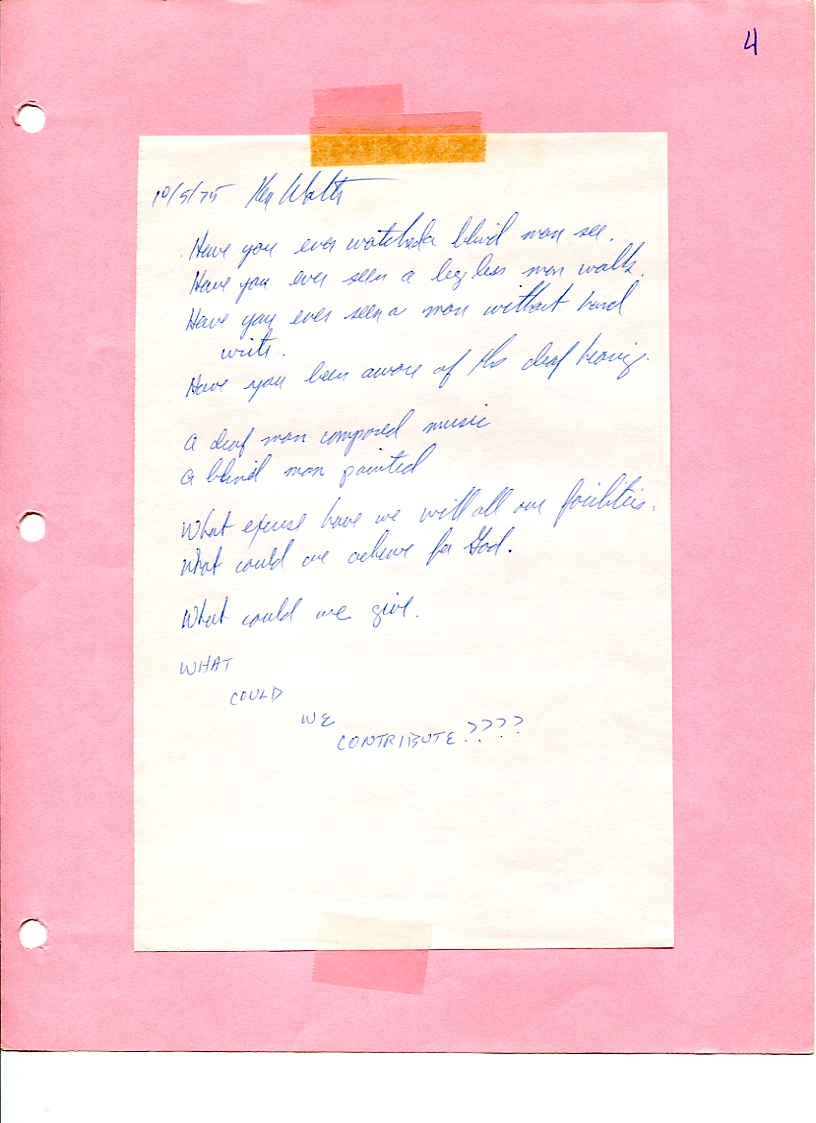 4
10/5/75 Ken Watts
Have you ever watched a blind man see.
Have you ever seen a legless man walk.
Have you ever seen a man without hand
write.
Have you been aware of the deaf hearing.
A deaf man composed music
A blind man painted
What excuse have we with all our facilities.
What could we achieve for God.
What could we give.
WHAT
COULD
WE
CONTRIBUTE????